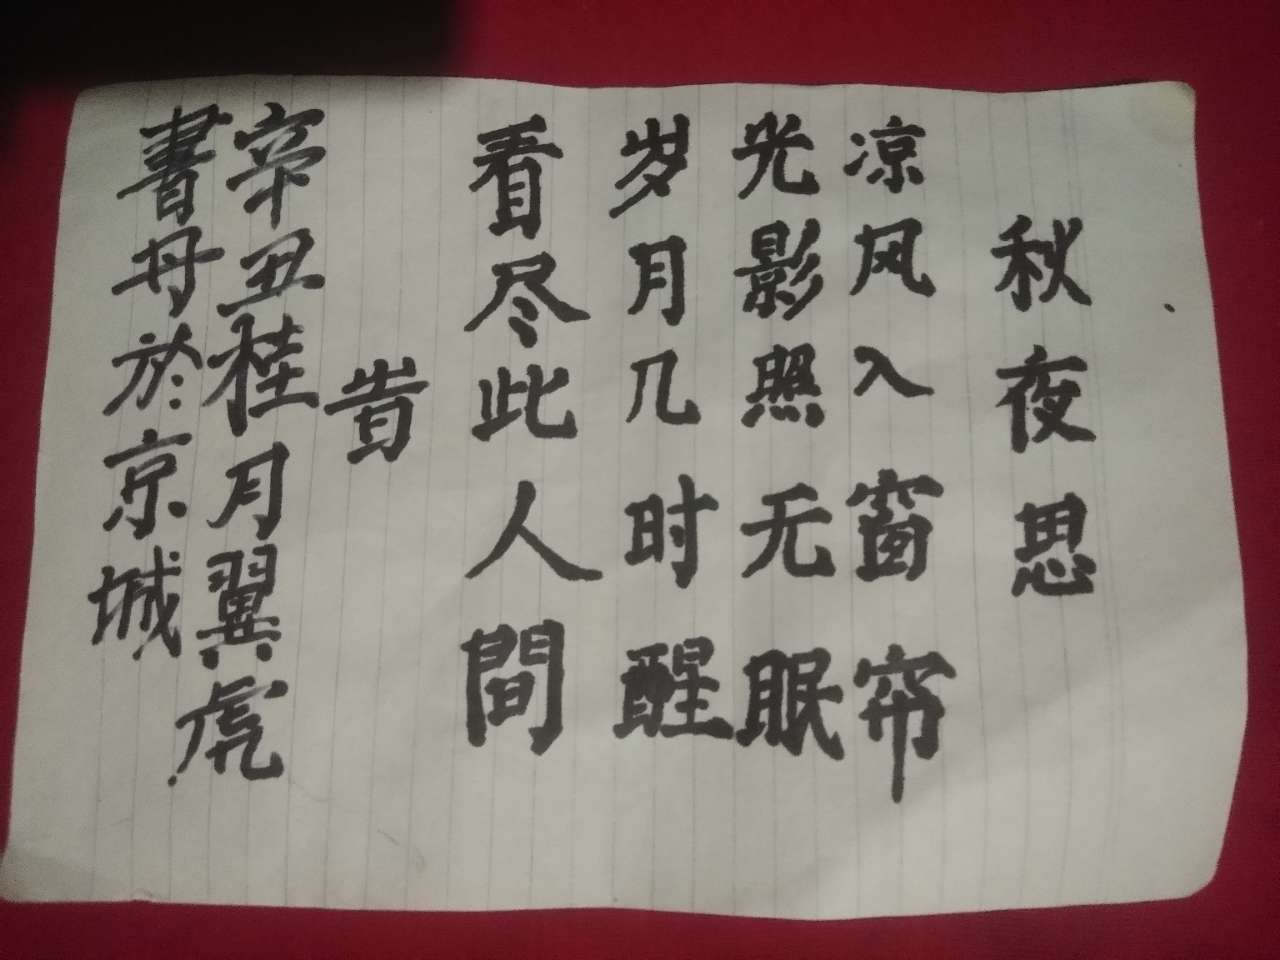 秋夜思
凉风入窗帘
光影照无眠
岁月几时醒
看尽此人間
旹
辛丑桂月翼虎
書丹於京城